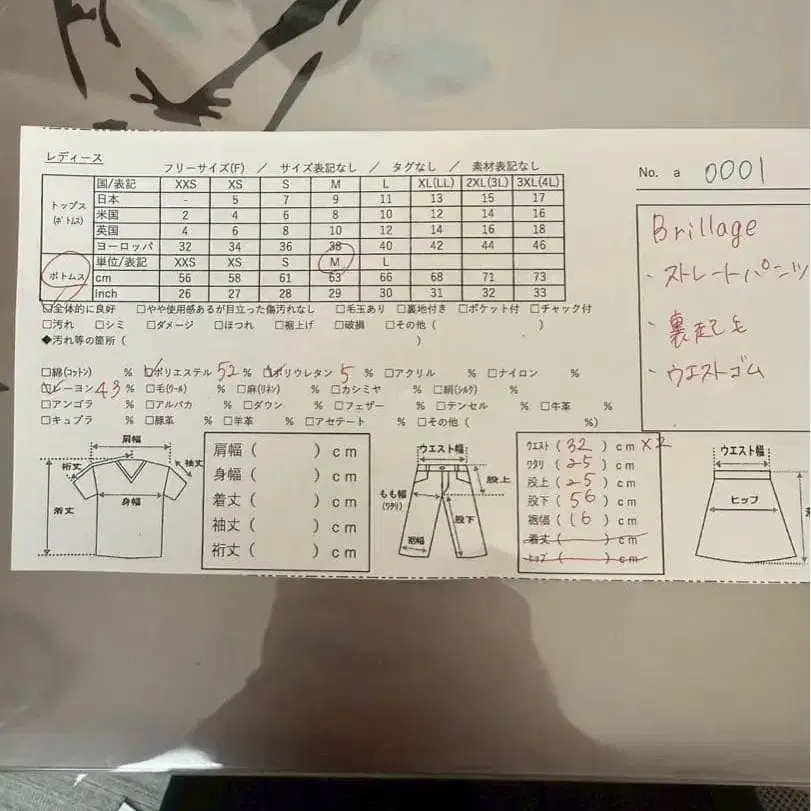 レディース
フリーサイズ(F) / サイズ表記なし / タグなし / 素材表記なし
No. a 0001
トップス
(ボトムス)
国/表記 XXS XS S M L XL(LL) 2XL(3L) 3XL(4L)
日本 - 5 7 9 11 13 15 17
米国 2 4 6 8 10 12 14 16
英国 4 6 8 10 12 14 16 18
ヨーロッパ 32 34 36 38 40 42 44 46
ボトムス
単位/表記 XXS XS S M L
cm 56 58 61 63 66 68 71 73
inch 26 27 28 29 30 31 32 33
Brillage
・ストレートパンツ
・裏起毛
・ウエストゴム
□全体的に良好 □やや使用感あるが目立った傷汚れなし □毛玉あり □裏地付き □ポケット付 □チャック付
□汚れ □シミ □ダメージ □ほつれ □裾上げ □破損 □その他( )
◆汚れ等の箇所( )
□綿(コットン) % □ポリエステル 52 % □ポリウレタン 5 % □アクリル % □ナイロン %
□レーヨン 43 % □毛(ウール) % □麻(リネン) % □カシミヤ % □絹(シルク) %
□アンゴラ % □アルパカ % □ダウン % □フェザー % □テンセル % □牛革 %
□キュプラ % □豚革 % □羊革 % □アセテート % □その他( %)
肩幅
裄丈
袖丈
身幅
着丈
肩幅( )cm
身幅( )cm
着丈( )cm
袖丈( )cm
裄丈( )cm
ウエスト幅
股上
もも幅
(ワタリ)
股下
裾幅
ウエスト(32)cm×2
ワタリ(25)cm
股上(25)cm
股下(56)cm
裾幅(16)cm
着丈( )cm
ヒップ( )cm
ウエスト幅
ヒップ